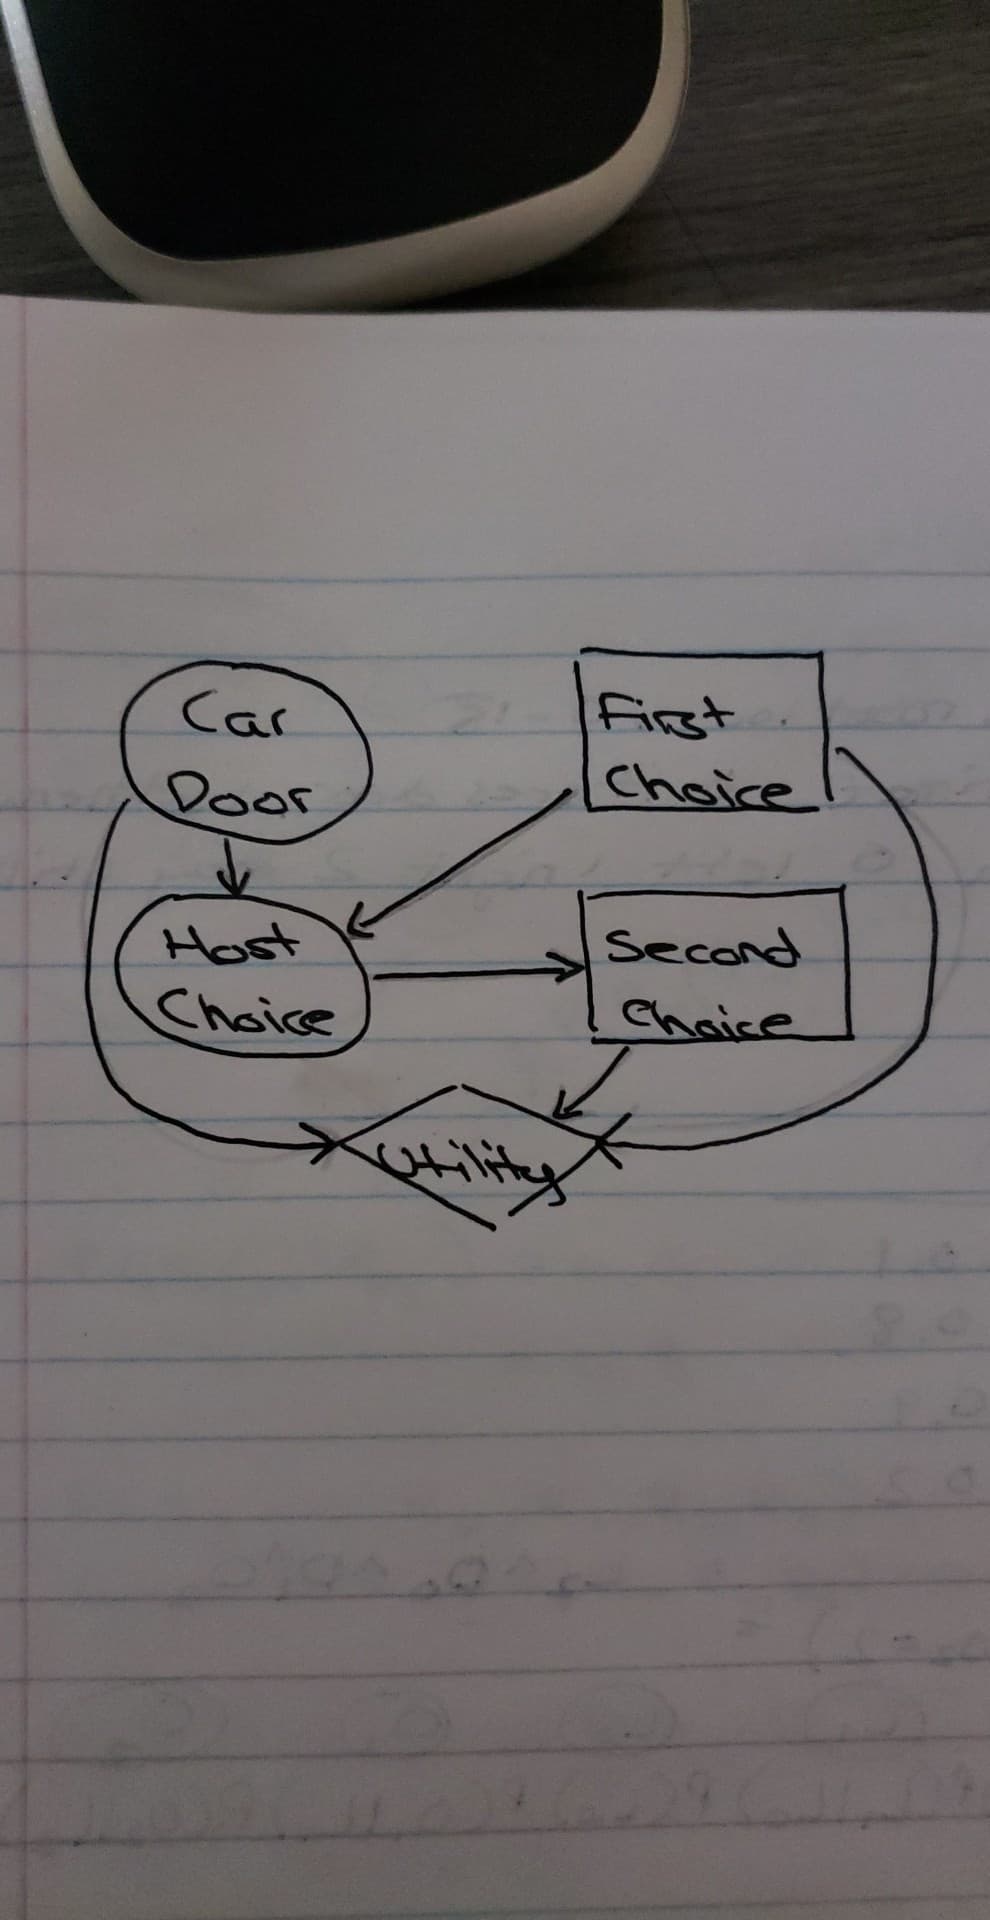 Car
Door
First
Choice
Host
Choice
Second
Choice
Utility